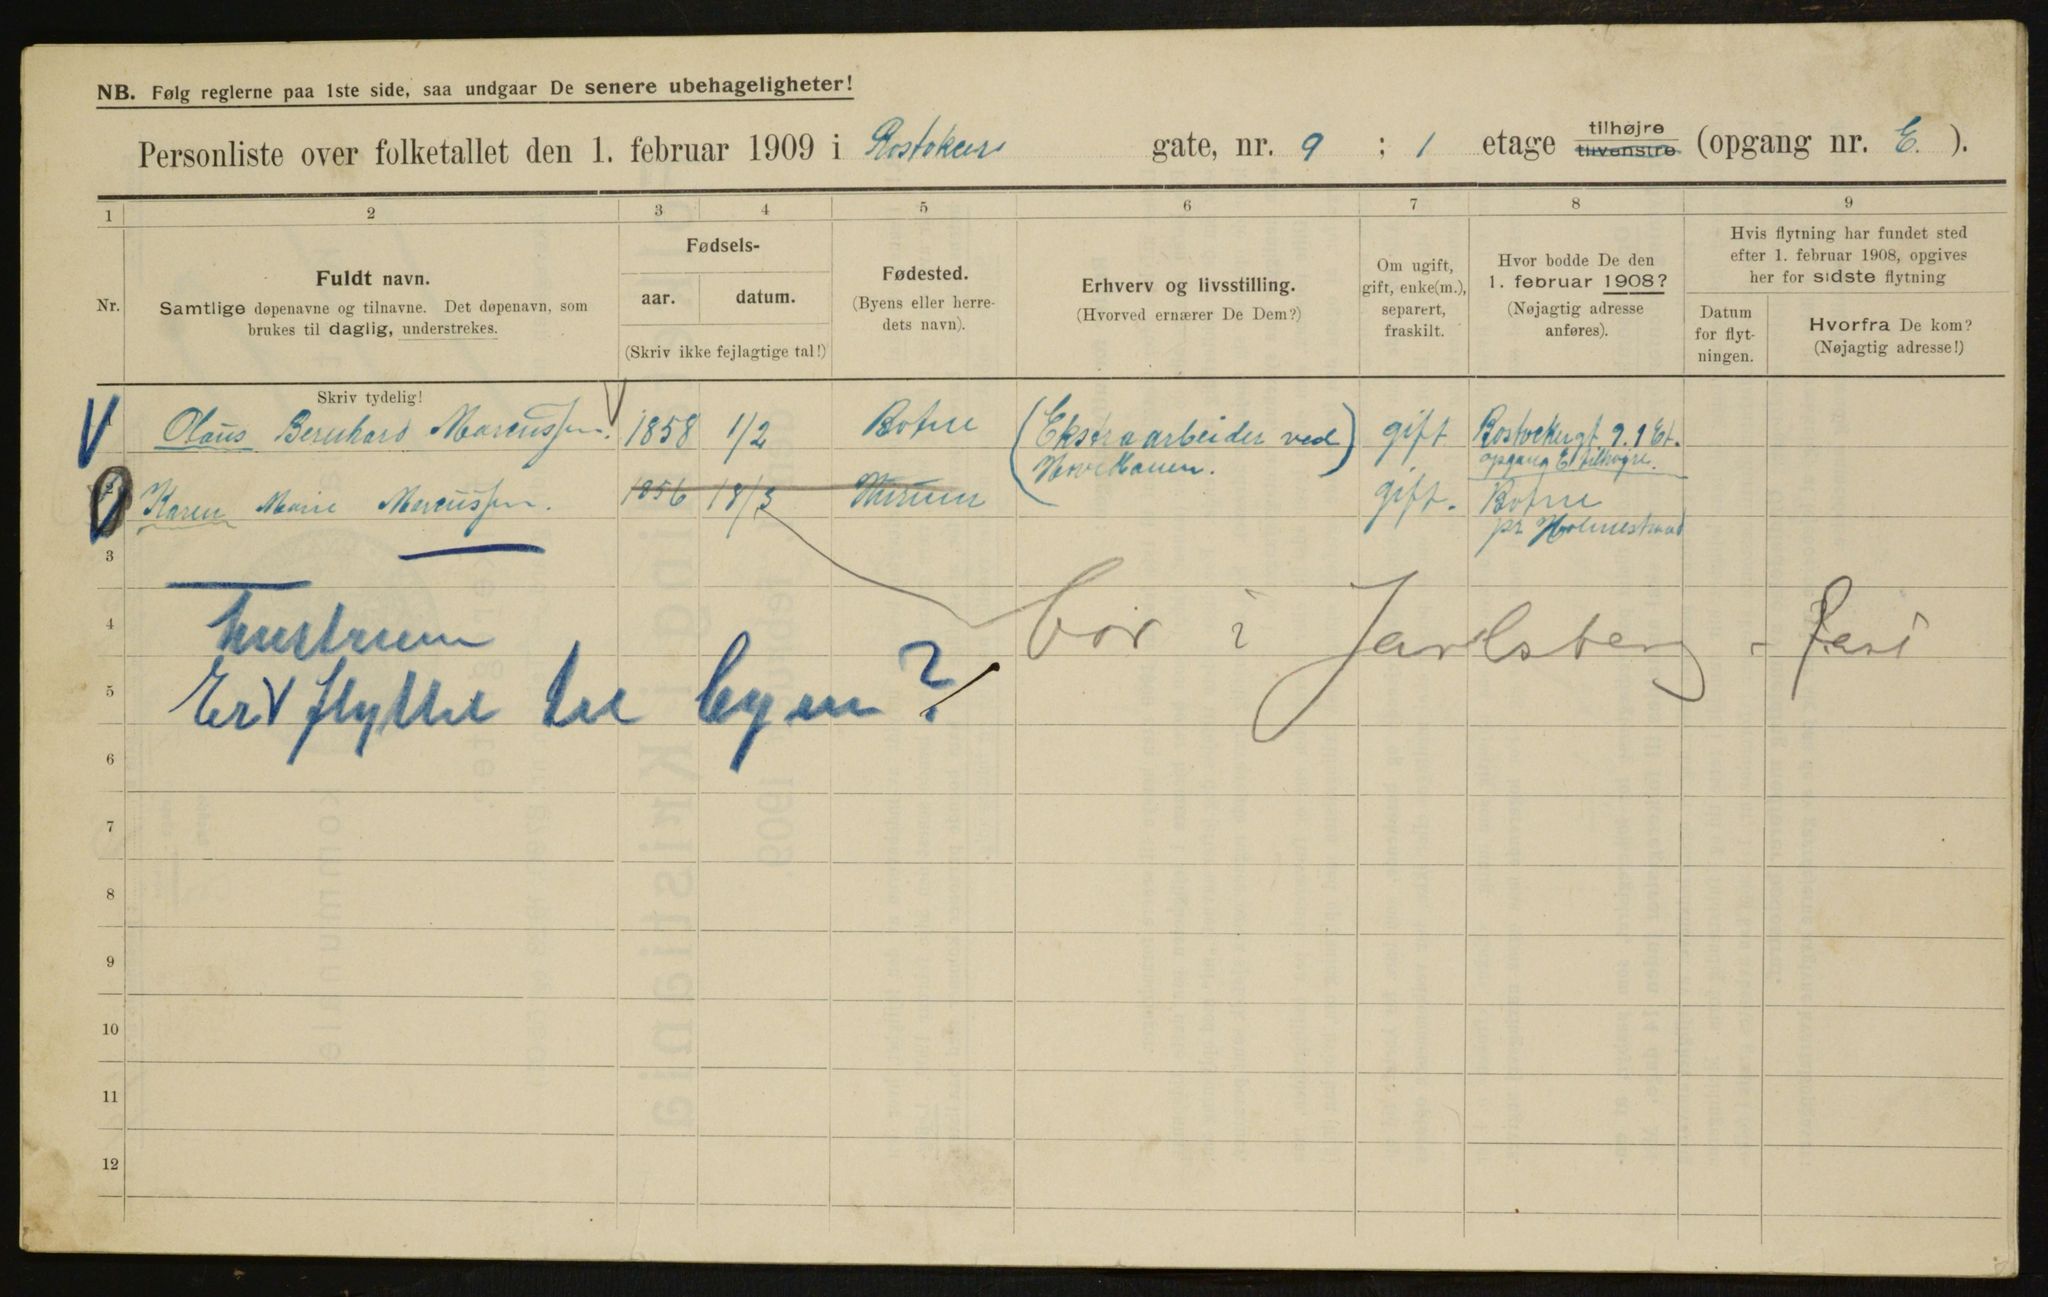 NB. Følg reglerne paa 1ste side, saa undgaar De senere ubehageligheter!
Personliste over folketallet den 1. februar 1909 i Rostokers gate, nr. 9 ; 1 etage tilhøjre tilvenstre (opgang nr. E. ).
1 2 3 4 5 6 7 8 9
Nr.
Fuldt navn.
Samtlige døpenavne og tilnavne. Det døpenavn, som
brukes til daglig, understrekes.
Fødsels-
aar. datum.
(Skriv ikke fejlagtige tal!)
Fødested.
(Byens eller herre-
dets navn).
Erhverv og livsstilling.
(Hvorved ernærer De Dem?)
Om ugift,
gift, enke(m.),
separert,
fraskilt.
Hvor bodde De den
1. februar 1908?
(Nøjagtig adresse
anføres).
Hvis flytning har fundet sted
efter 1. februar 1908, opgives
her for sidste flytning
Datum
for flyt-
ningen.
Hvorfra De kom?
(Nøjagtig adresse!)
Skriv tydelig!
1 Olaus Bernhard Marcussen. 1858 1/2 Botne (Ekstraarbeider ved) gift Rostockergt. 9. 1 Et.
opgang E tilhøjre.
2 Karen Marie Marcussen. 1856 18/3 gift. Botne
pr Holmestrand
3
4 hustruen bor i Jarlsberg
5 Er flyttet til byen?
6
7
8
9
10
11
12